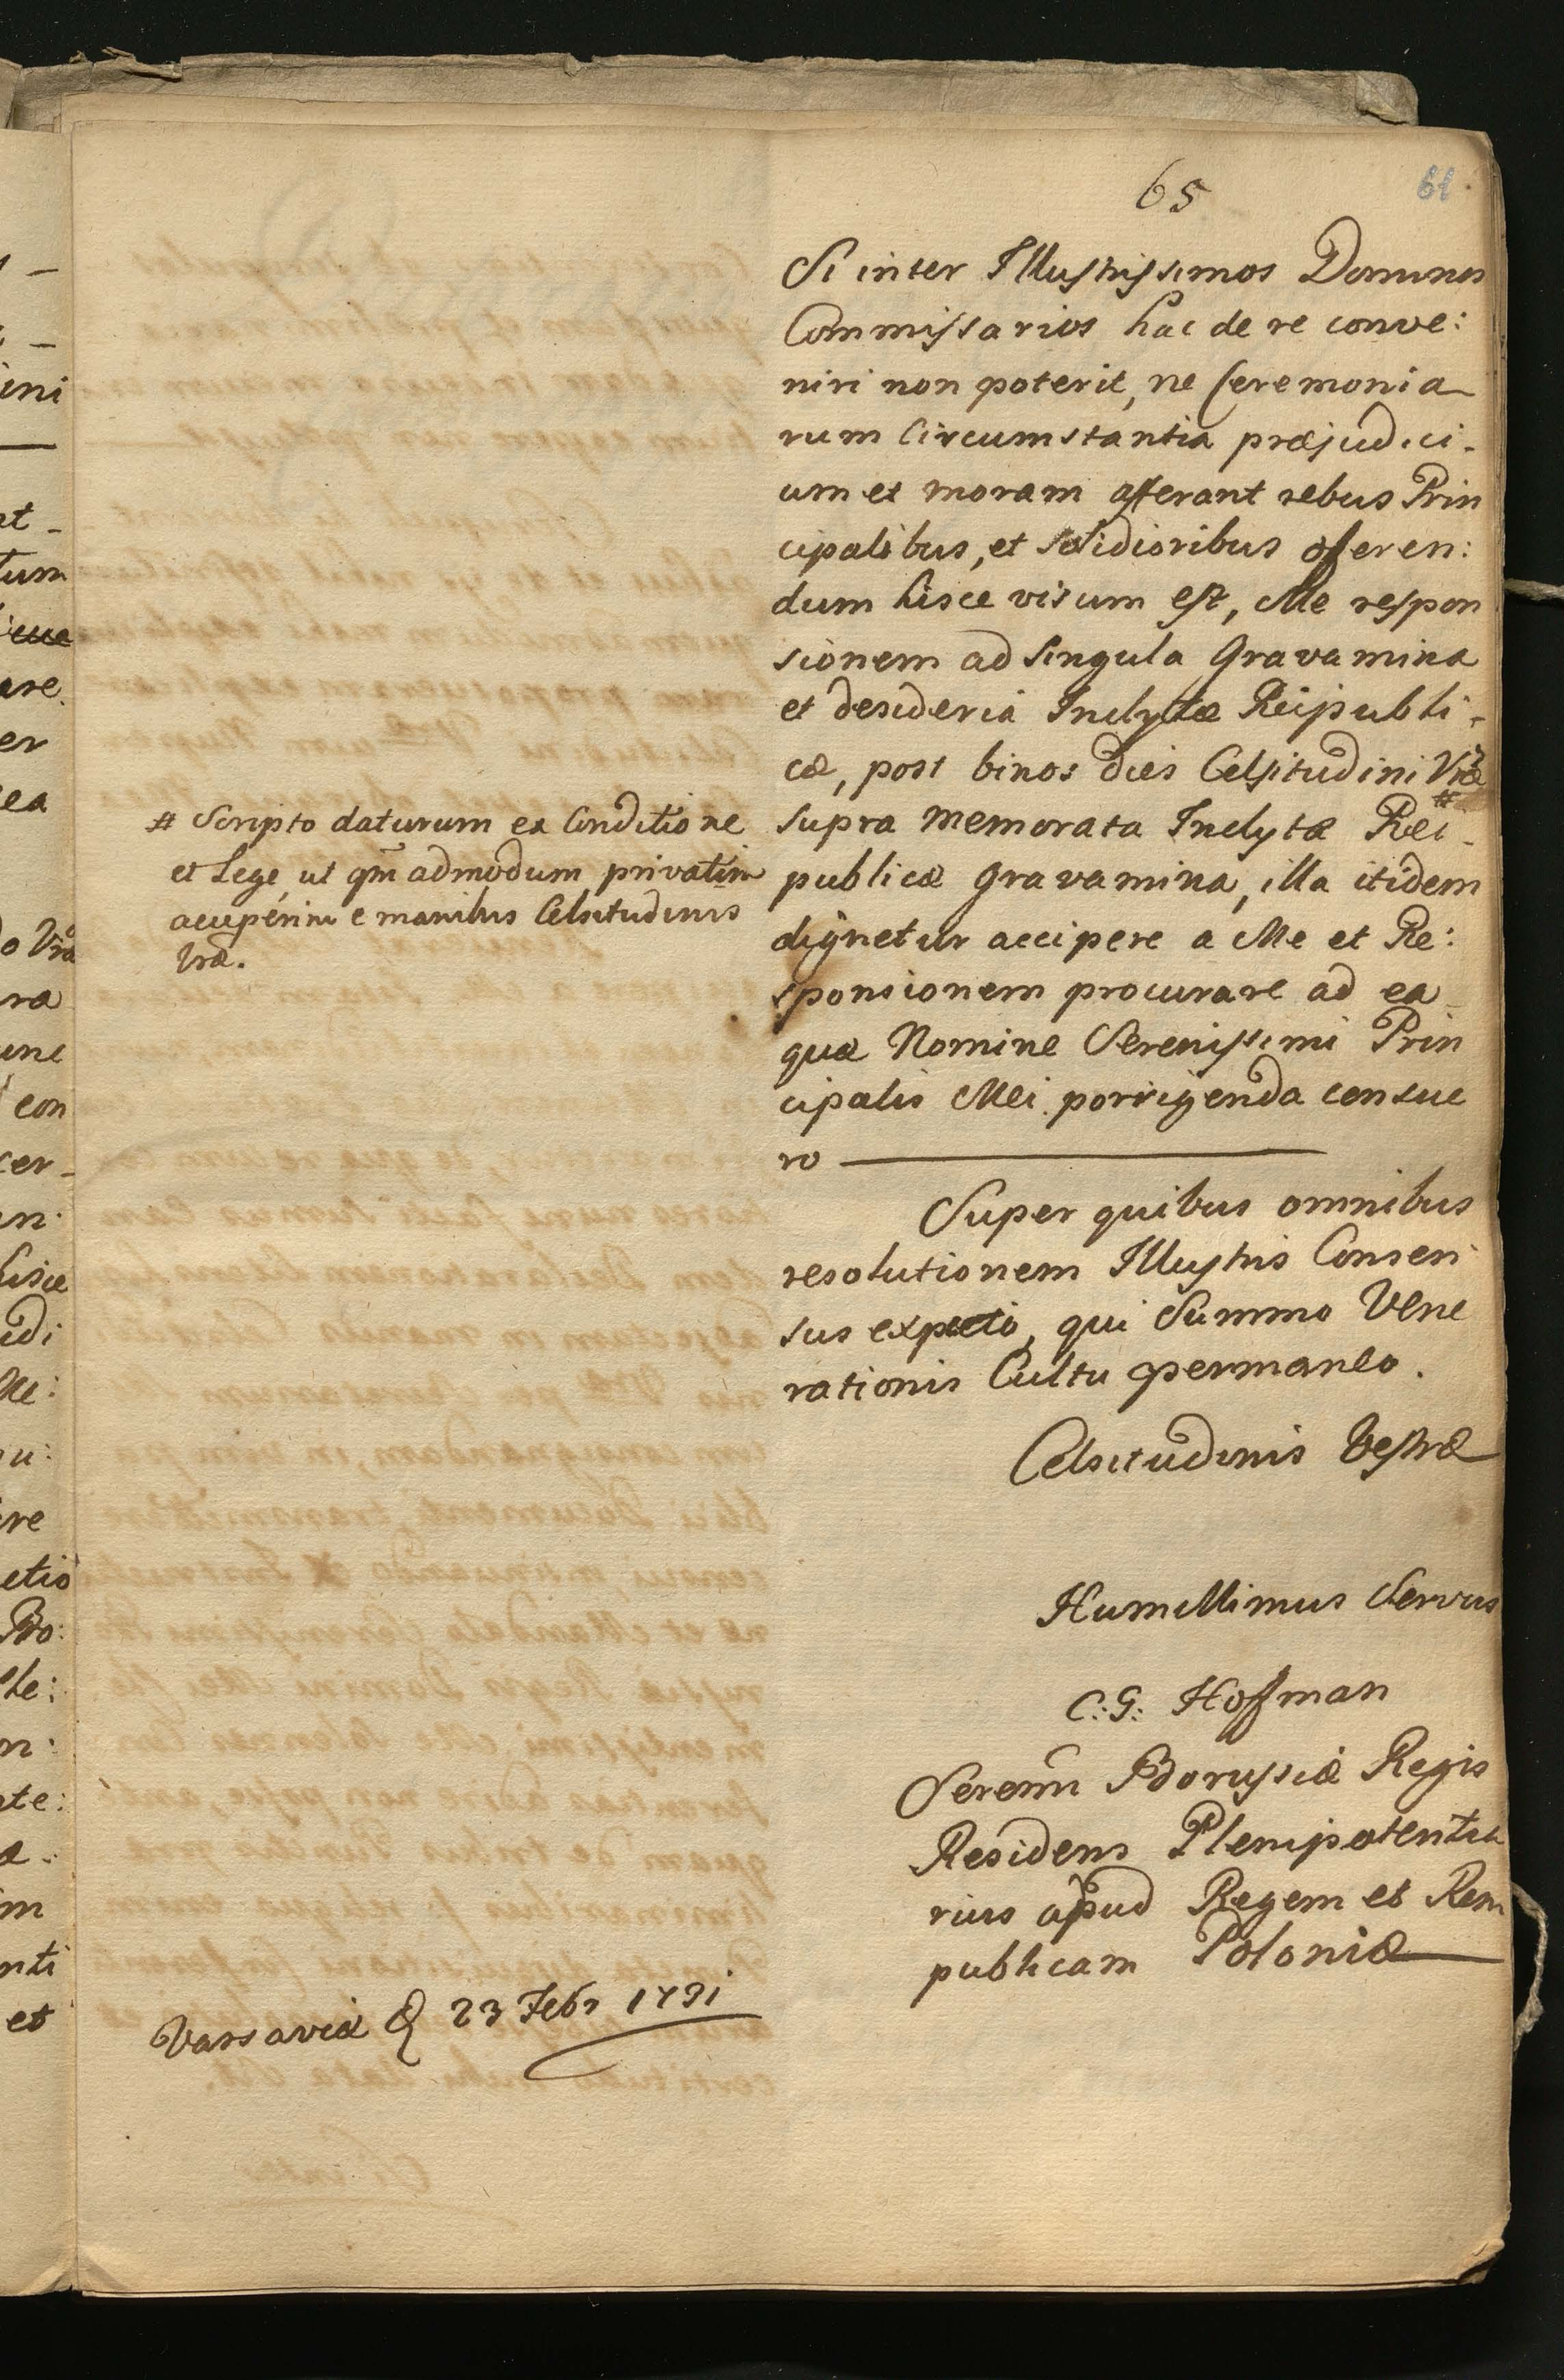 65
61
Si inter Illustrissimos Dominos
Commissarios hac de re conve:
niri non poterit, ne Ceremonia
rum Circumstantia præjudici-
um et moram afferant rebus Prin
cipalibus, et solidioribus oferen:
dum hisce visum est, Me respon
sionem ad singula Gravamina
et desideria Inclytæ Reipubli-
cæ, post binos dies Celsitudini Vræ #
supra memorata Inclytæ Rei-
publicæ Gravamina, illa itidem
dignetur accipere a Me et Re:
sponsionem procurare ad ea
quæ Nomine Serenissimi Prin
cipalis Mei porrigenda censue
ro
# Scripto daturum ea Conditione
et Lege, ut qm̃ admodum privatim
acceperim e manibus Celsitudinis
Vræ.
Super quibus omnibus
resolutionem Illustris Consen
sus expecto, qui Summo Vene
rationis Cultu permaneo.
Celsitudinis Vestræ
Humillimus Servus
C: G: Hoffman
Serenmi Borussiæ Regis
Residens Plenipotentia
rius apud Regem et Rem
publicam Poloniæ
Varsaviæ d 23 Febr 1731